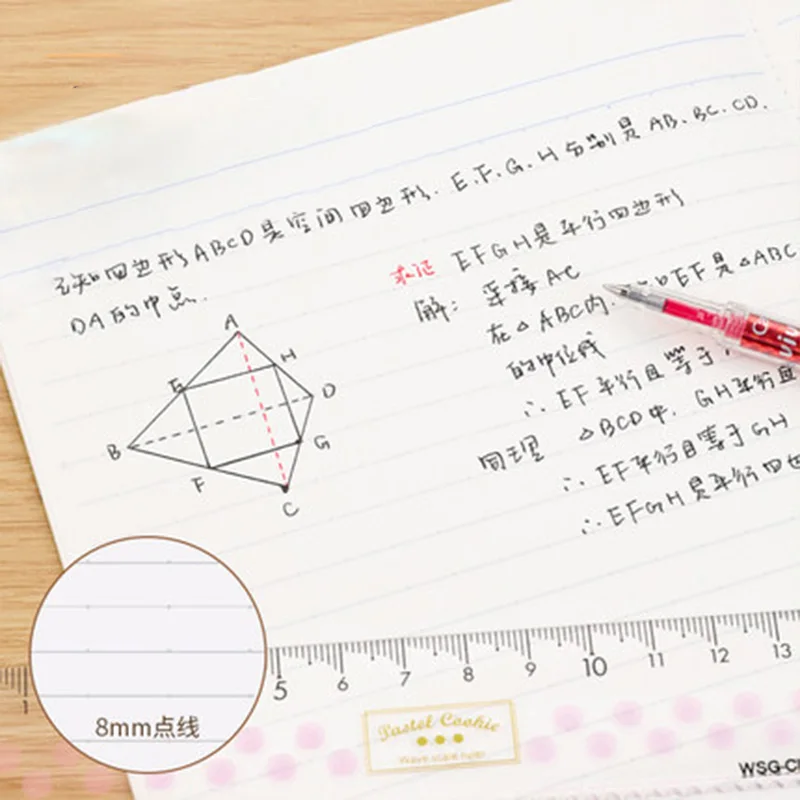 已知四边形ABCD是空间四边形. E.F.G.H分别是AB.BC.CD.
DA的中点.
求证 EFGH是平行四边形
解: 连接AC
在△ABC内. EF是△ABC
的中位线
∴ EF平行且等于
同理 △BCD中. GH平行且
∴ EF平行且等于GH
∴ EFGH是平行四边
A
H
E
D
B
G
F
C
8mm点线
1
5 6 7 8 9 10 11 12 13
Pastel Cookie
WSG-C